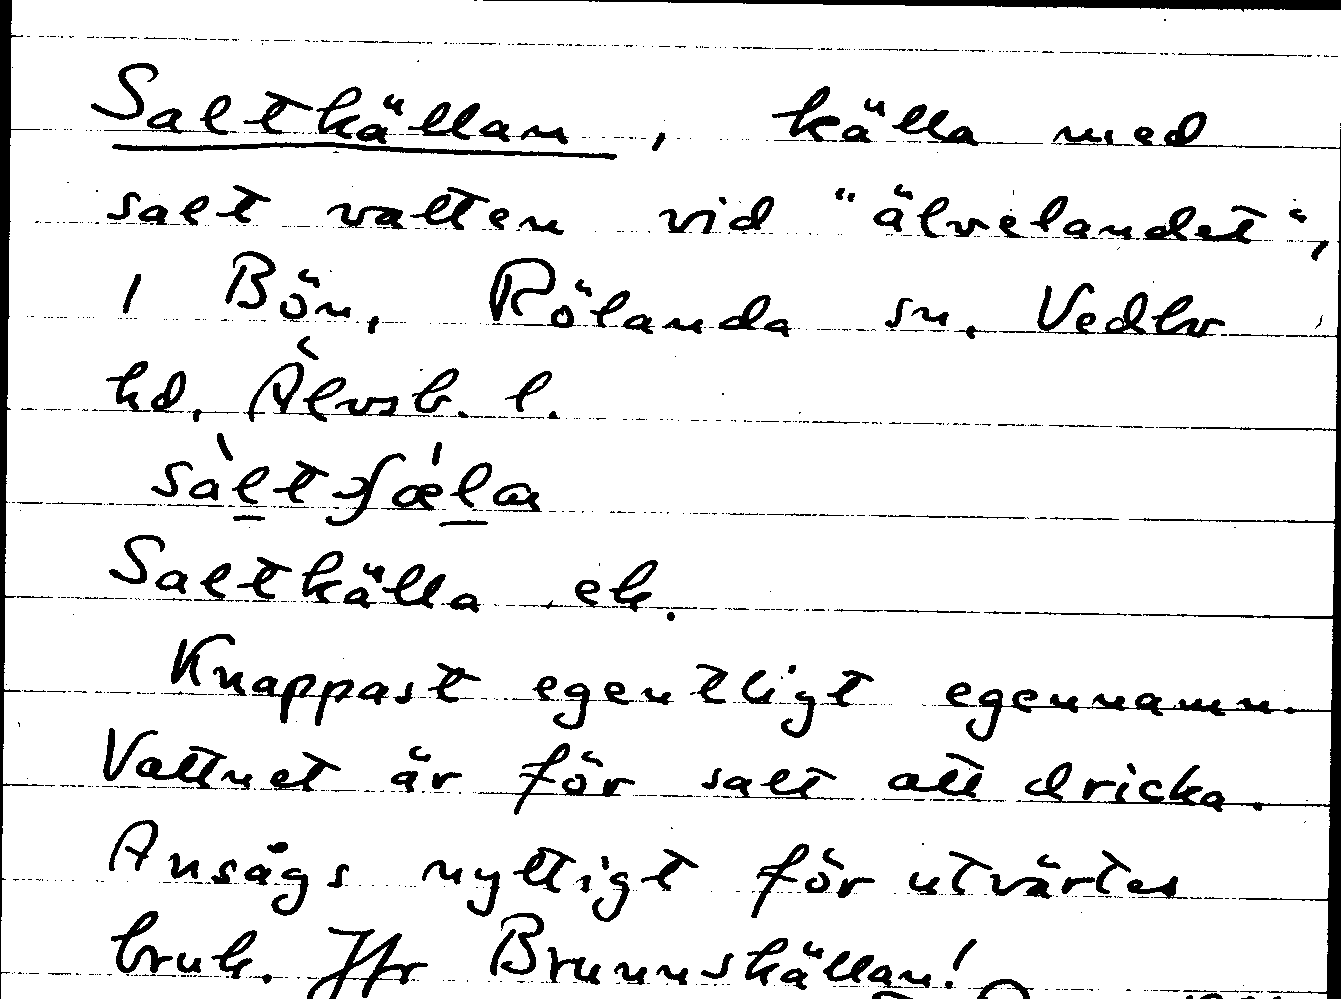 Saltkällan, källa med
salt vatten vid "älvelandet",
i Bön, Rölanda sn, Vedbo
hd, Älvsb. l.
Saltkälla ek.
Knappast egentligt egennamn.
Vattnet är för salt att dricka.
Ansågs nyttigt för utvärtes
bruk. Jfr Brunnskällan!